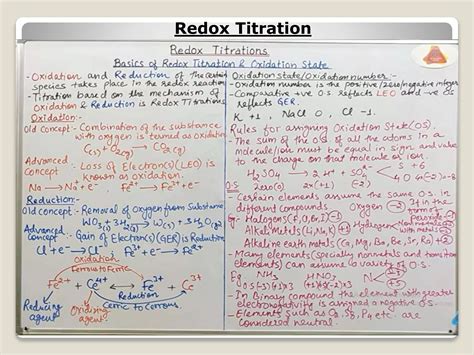 Redox Titration
Redox Titrations
Basics of Redox Titration & Oxidation State
- Oxidation and Reduction of the certain
species takes place in the redox reaction
- Titration based on the mechanism of
Oxidation & Reduction is Redox Titrations.
Oxidation:-
Old Concept - Combination of the substance
with oxygen is termed as oxidation
C(s) + O2(g) → CO2(g)
Advanced Concept - Loss of Electron(s) (LEO) is
known as oxidation.
Na → Na+ + e- , Fe2+ → Fe3+ + e-
Reduction:-
Old concept - Removal of oxygen from Substance
WO3 + 3H2(g) → W(s) + 3H2O(g)
Advanced Concept - Gain of Electron(s) (GER) is Reduction
Cl + e- → Cl- , Fe3+ + e- → Fe2+
Oxidation
Ferrous to Ferric
Fe2+ + Ce4+ → Fe3+ + Ce3+
Reduction
Ceric to Cerrous.
Reducing agent
Oxidising agent
Oxidation state/oxidation number :-
- Oxidation number is the positive/zero/negative integer
- Comparative +ve O.S reflects LEO and -ve OS
reflects GER.
K +1, NaCl 0, Cl -1.
Rules for assigning Oxidation State (OS)
- The sum of the o.s of all the atoms in a
molecule/ion must be equal in sign and value
to the charge on that molecule or ion.
H2SO4 → 2H+ + SO4 2-
O.S Zero(0) 2x(+1) (+2) +6-8=-2
- Certain elements assume the same O.S. in
different compounds Oxygen -2
Eg. Halogens (F,Cl,Br,I) -1
Alkali Metals (Li,Na,K) +1
Alkaline earth metals (Ca, Mg, Ba, Be, Sr, Ra) +2
- Many elements (specially nonmetals and transition
elements) can assume a variety of O.S.
- In Binary compound the element with greater
electronegativity is assigned a negative O.S
- Elements such as C, S8, P4 etc. are
considered neutral.